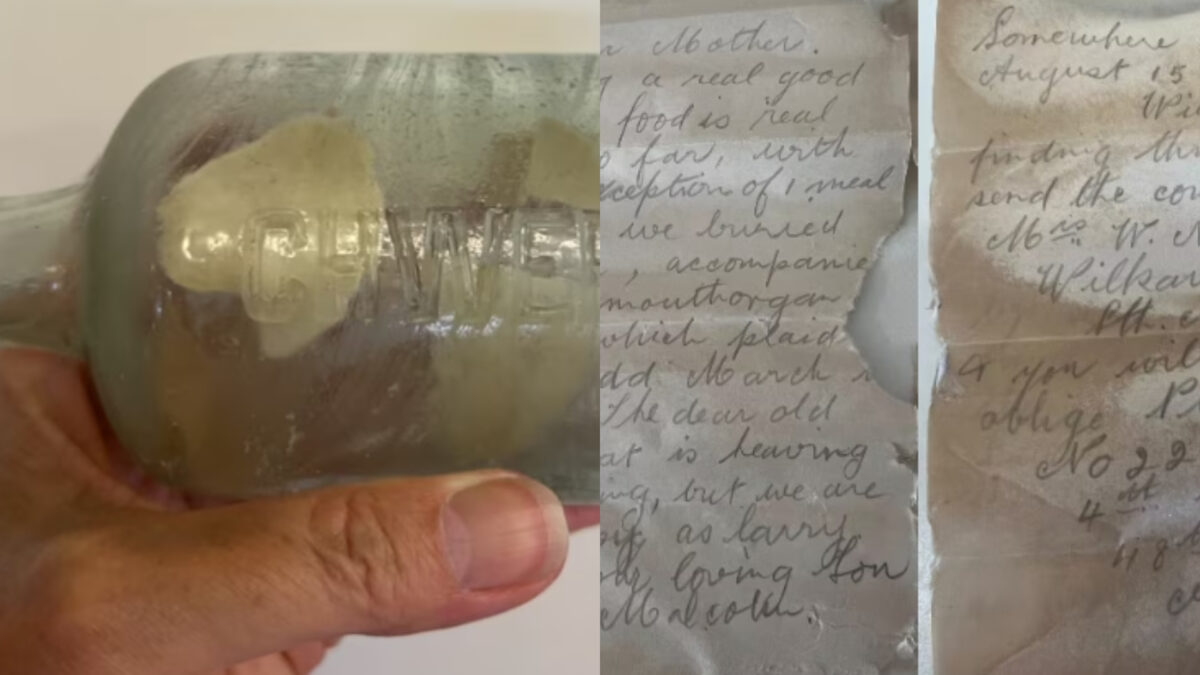 Mother.
a real good
food is real
far, with
xception of 1 meal
we buried
, accompanie
mouthorgan
which plaid
dd March
The dear old
at is heaving
ng, but we are
as larry.
loving Son
Malcolm.
Somewhere
August 15
finding
send the
W.
Wilka
4 you wil
oblige P
No 22
4
48